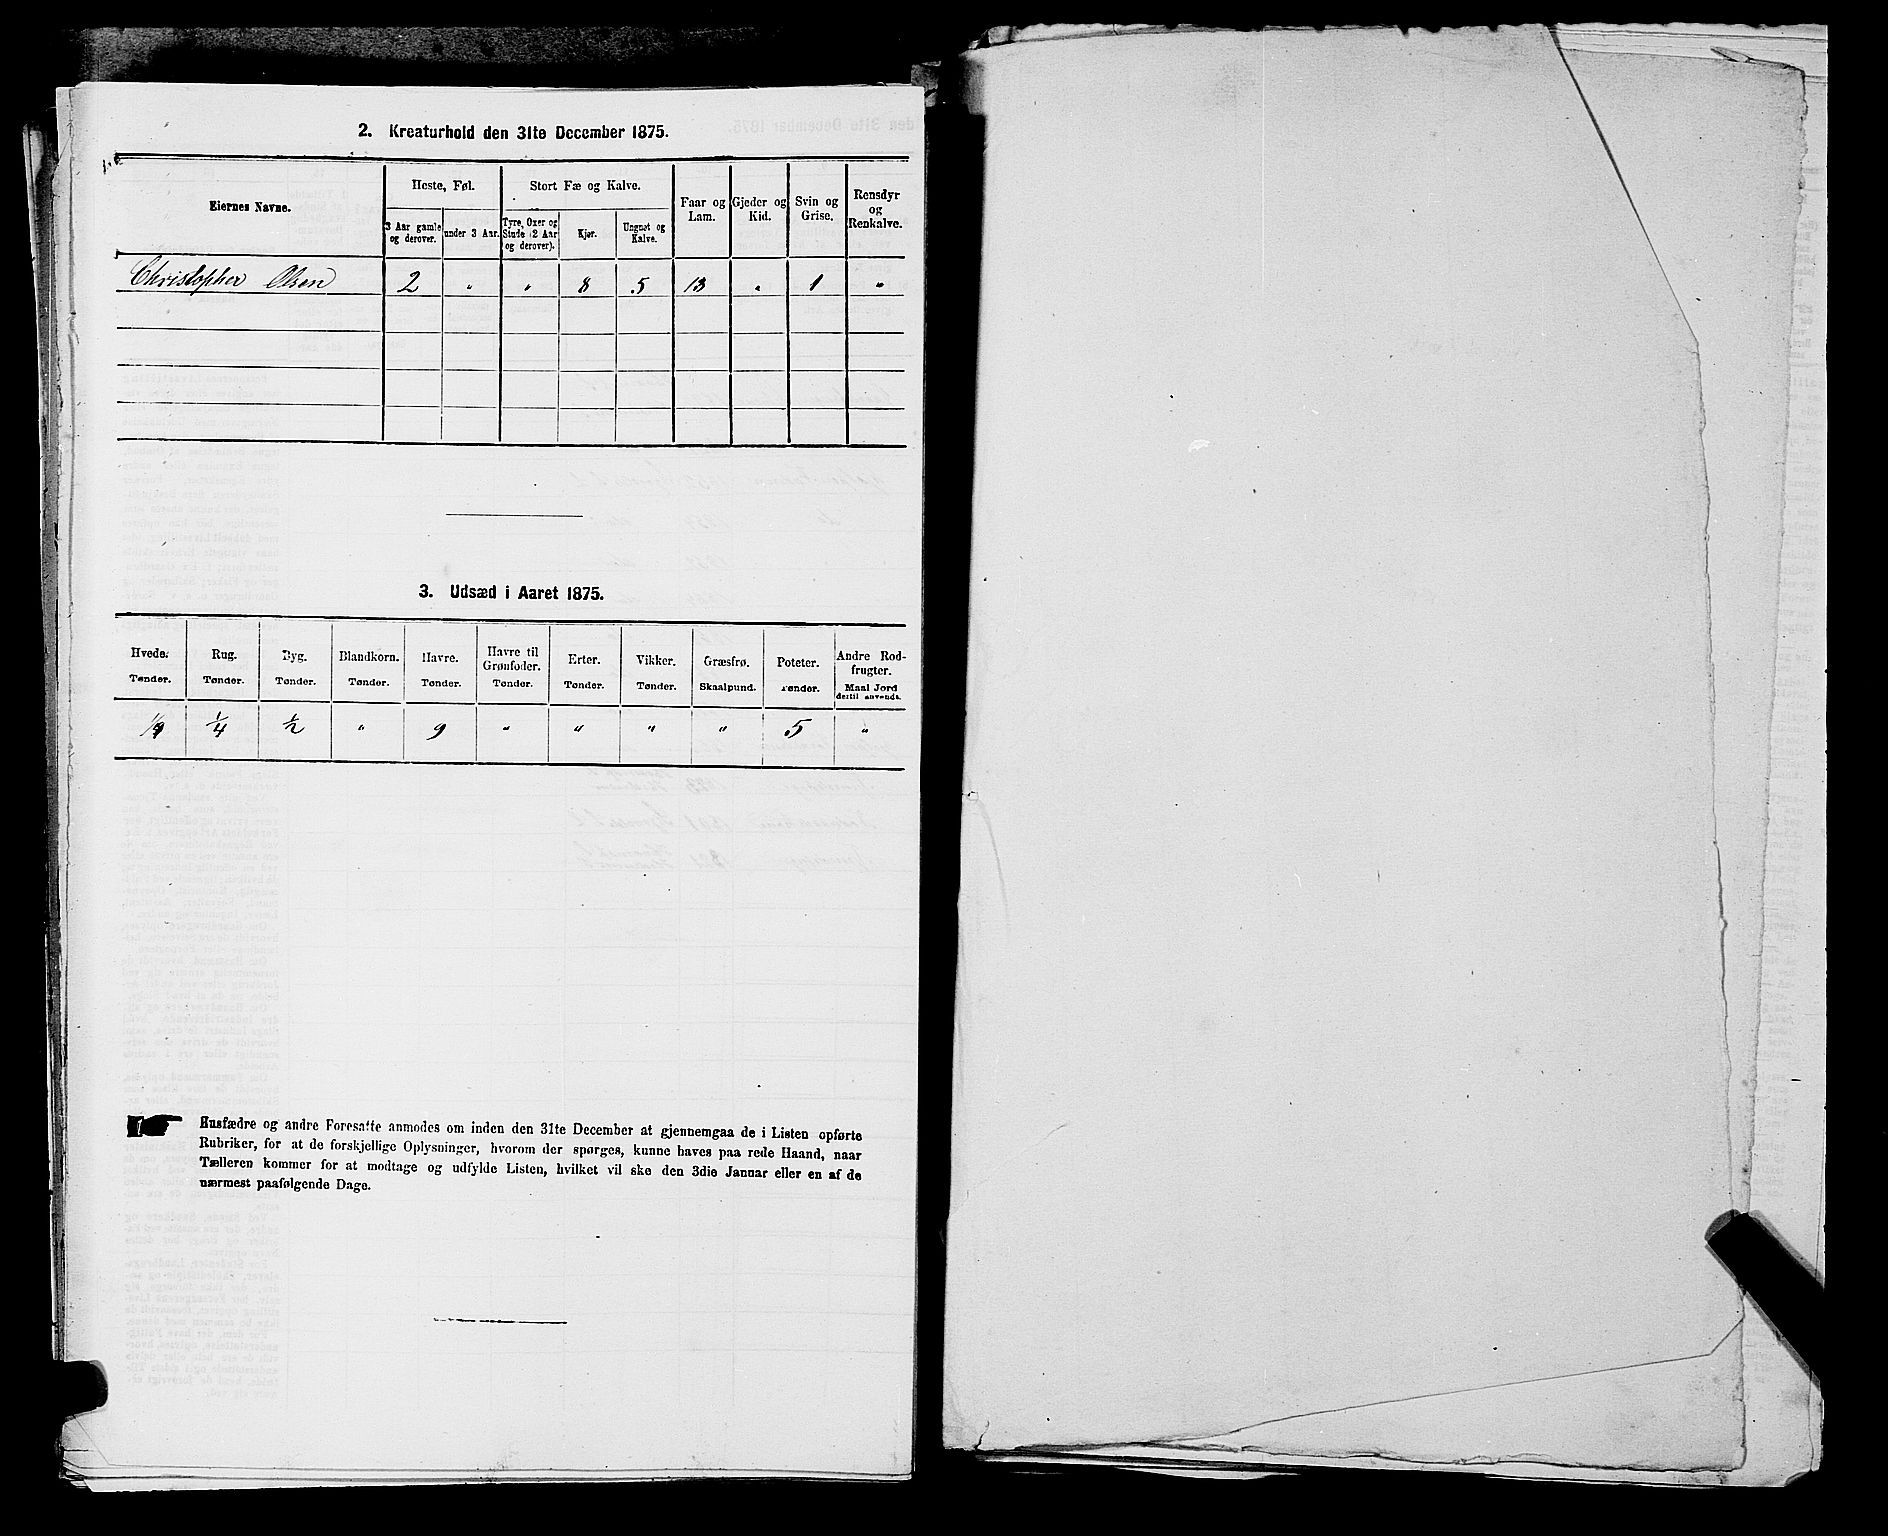 2. Kreaturhold den 31te December 1875.
Eiernes Navne.
Heste, Føl.
3 Aar gamle og derover.
under 3 Aar.
Stort Fæ og Kalve.
Tyre, Oxer og Stude (2 Aar og derover).
Kjør.
Ungnøt og Kalve.
Faar og Lam.
Gjeder og Kid.
Svin og Grise.
Rensdyr og Renkalve.
Christopher Olsen 2 " " 8 5 13 " 1 "
3. Udsæd i Aaret 1875.
Hvede. Tønder.
Rug. Tønder.
Byg. Tønder.
Blandkorn. Tønder.
Havre. Tønder.
Havre til Grønfoder. Tønder.
Erter. Tønder.
Vikker. Tønder.
Græsfrø. Skaalpund.
Poteter. Tønder.
Andre Rodfrugter. Maal Jord dertil anvendt.
1/4 1/2 " 9 " " " " 5 "
Husfædre og andre Foresatte anmodes om inden den 31te December at gjennemgaa de i Listen opførte
Rubriker, for at de forskjellige Oplysninger, hvorom der spørges, kunne haves paa rede Haand, naar
Tælleren kommer for at modtage og udfylde Listen, hvilket vil ske den 3die Januar eller en af de
nærmest paafølgende Dage.